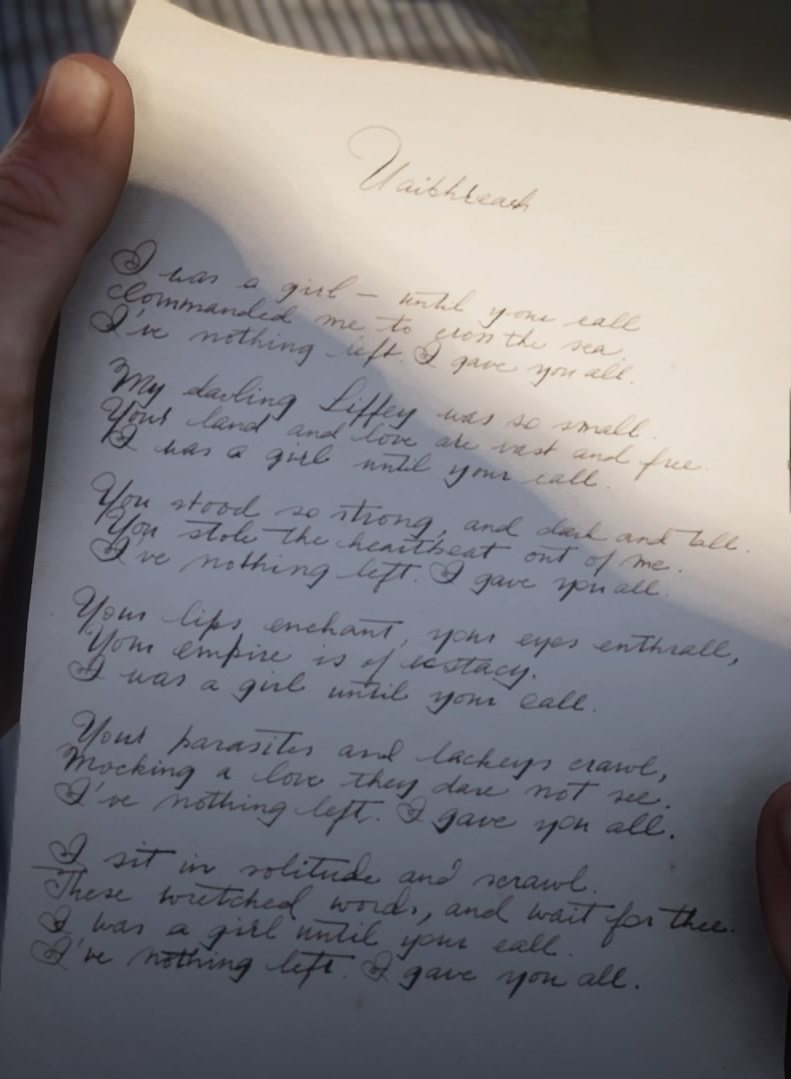 Uaibhreach
I was a girl – until your call
Commanded me to cross the sea.
I've nothing left. I gave you all.
My darling Liffey was so small.
Your land and love are vast and free.
I was a girl until your call.
You stood so strong, and dark and tall.
You stole the heartbeat out of me.
I've nothing left. I gave you all.
Your lips enchant, your eyes enthrall,
Your empire is of ecstacy.
I was a girl until your call.
Your parasites and lackeys crawl,
Mocking a love they dare not see.
I've nothing left. I gave you all.
I sit in solitude and scrawl.
These wretched words, and wait for thee.
I was a girl until your call.
I've nothing left. I gave you all.